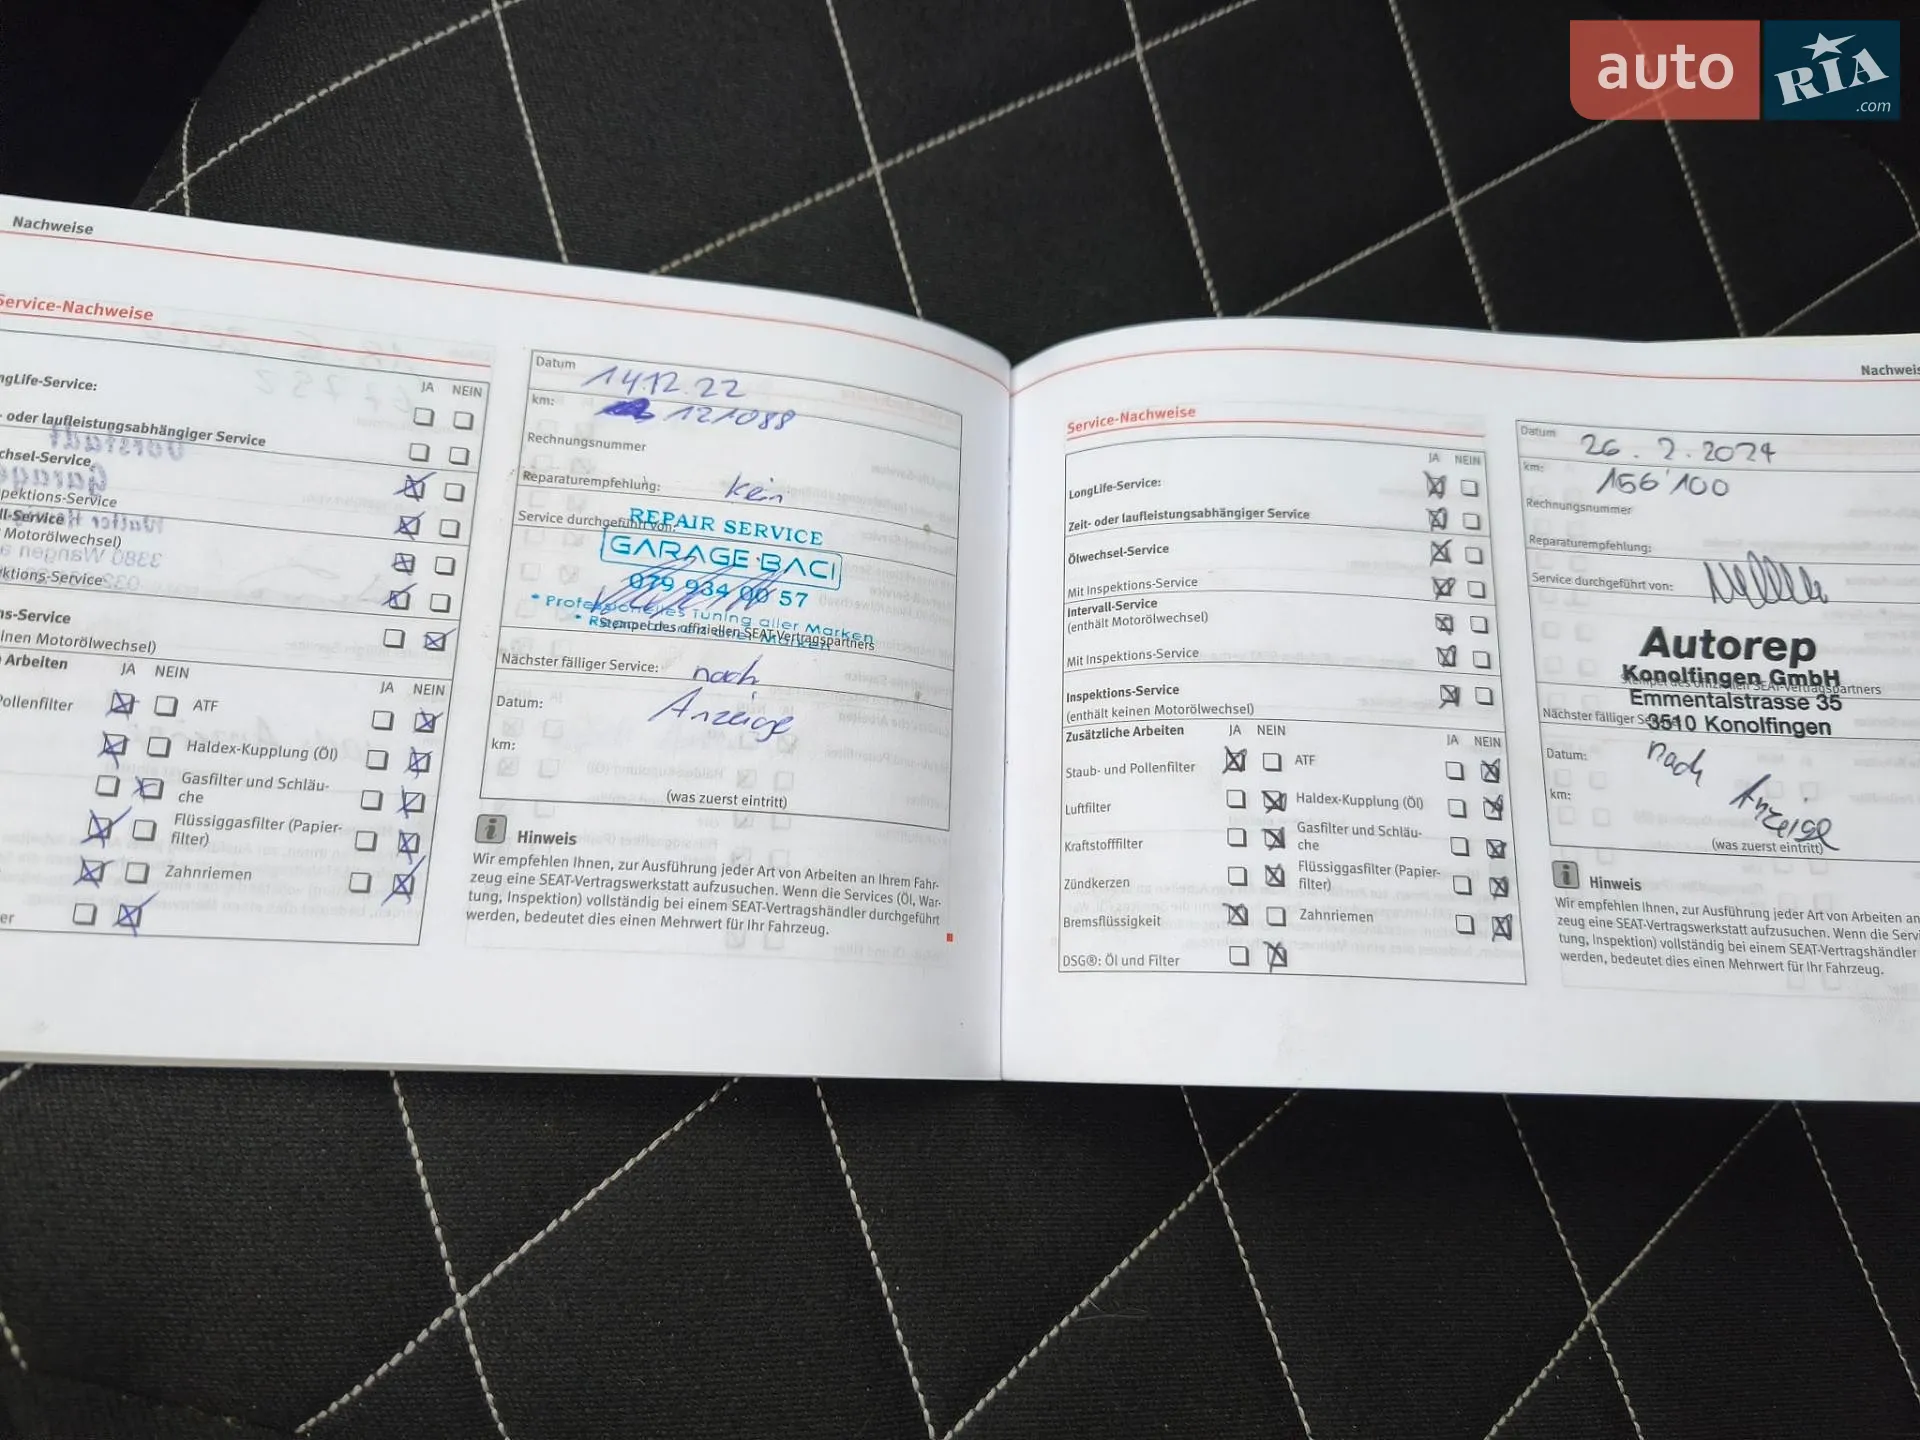 auto
RIA
.com
Nachweise
Service-Nachweise
ngLife-Service:
JA NEIN
- oder laufleistungsabhängiger Service
chsel-Service
pektions-Service
ll-Service
Motorölwechsel)
ktions-Service
ns-Service
inen Motorölwechsel)
Arbeiten
JA NEIN
JA NEIN
Pollenfilter
ATF
Haldex-Kupplung (Öl)
Gasfilter und Schläu-
che
Flüssiggasfilter (Papier-
filter)
Zahnriemen
er
Datum
14.12.22
km:
121088
Rechnungsnummer
Reparaturempfehlung:
kein
Service durchgeführt von:
REPAIR SERVICE
GARAGE·BACI
079 934 00 57
* Professionelles Tuning aller Marken
Stempel des offiziellen SEAT-Vertragspartners
Nächster fälliger Service:
nach
Datum:
Anzeige
km:
(was zuerst eintritt)
Hinweis
Wir empfehlen Ihnen, zur Ausführung jeder Art von Arbeiten an Ihrem Fahr-
zeug eine SEAT-Vertragswerkstatt aufzusuchen. Wenn die Services (Öl, War-
tung, Inspektion) vollständig bei einem SEAT-Vertragshändler durchgeführt
werden, bedeutet dies einen Mehrwert für Ihr Fahrzeug.
Nachweis
Service-Nachweise
JA NEIN
LongLife-Service:
Zeit- oder laufleistungsabhängiger Service
Ölwechsel-Service
Mit Inspektions-Service
Intervall-Service
(enthält Motorölwechsel)
Mit Inspektions-Service
Inspektions-Service
(enthält keinen Motorölwechsel)
Zusätzliche Arbeiten
JA NEIN
JA NEIN
Staub- und Pollenfilter
ATF
Luftfilter
Haldex-Kupplung (Öl)
Kraftstofffilter
Gasfilter und Schläu-
che
Zündkerzen
Flüssiggasfilter (Papier-
filter)
Bremsflüssigkeit
Zahnriemen
DSG®: Öl und Filter
Datum
26.2.2024
km:
156'100
Rechnungsnummer
Reparaturempfehlung:
Service durchgeführt von:
Autorep
Konolfingen GmbH
Stempel des offiziellen SEAT-Vertragspartners
Emmentalstrasse 35
Nächster fälliger Service:
3510 Konolfingen
Datum:
nach
km:
Anzeige
(was zuerst eintritt)
Hinweis
Wir empfehlen Ihnen, zur Ausführung jeder Art von Arbeiten an
zeug eine SEAT-Vertragswerkstatt aufzusuchen. Wenn die Servi
tung, Inspektion) vollständig bei einem SEAT-Vertragshändler
werden, bedeutet dies einen Mehrwert für Ihr Fahrzeug.